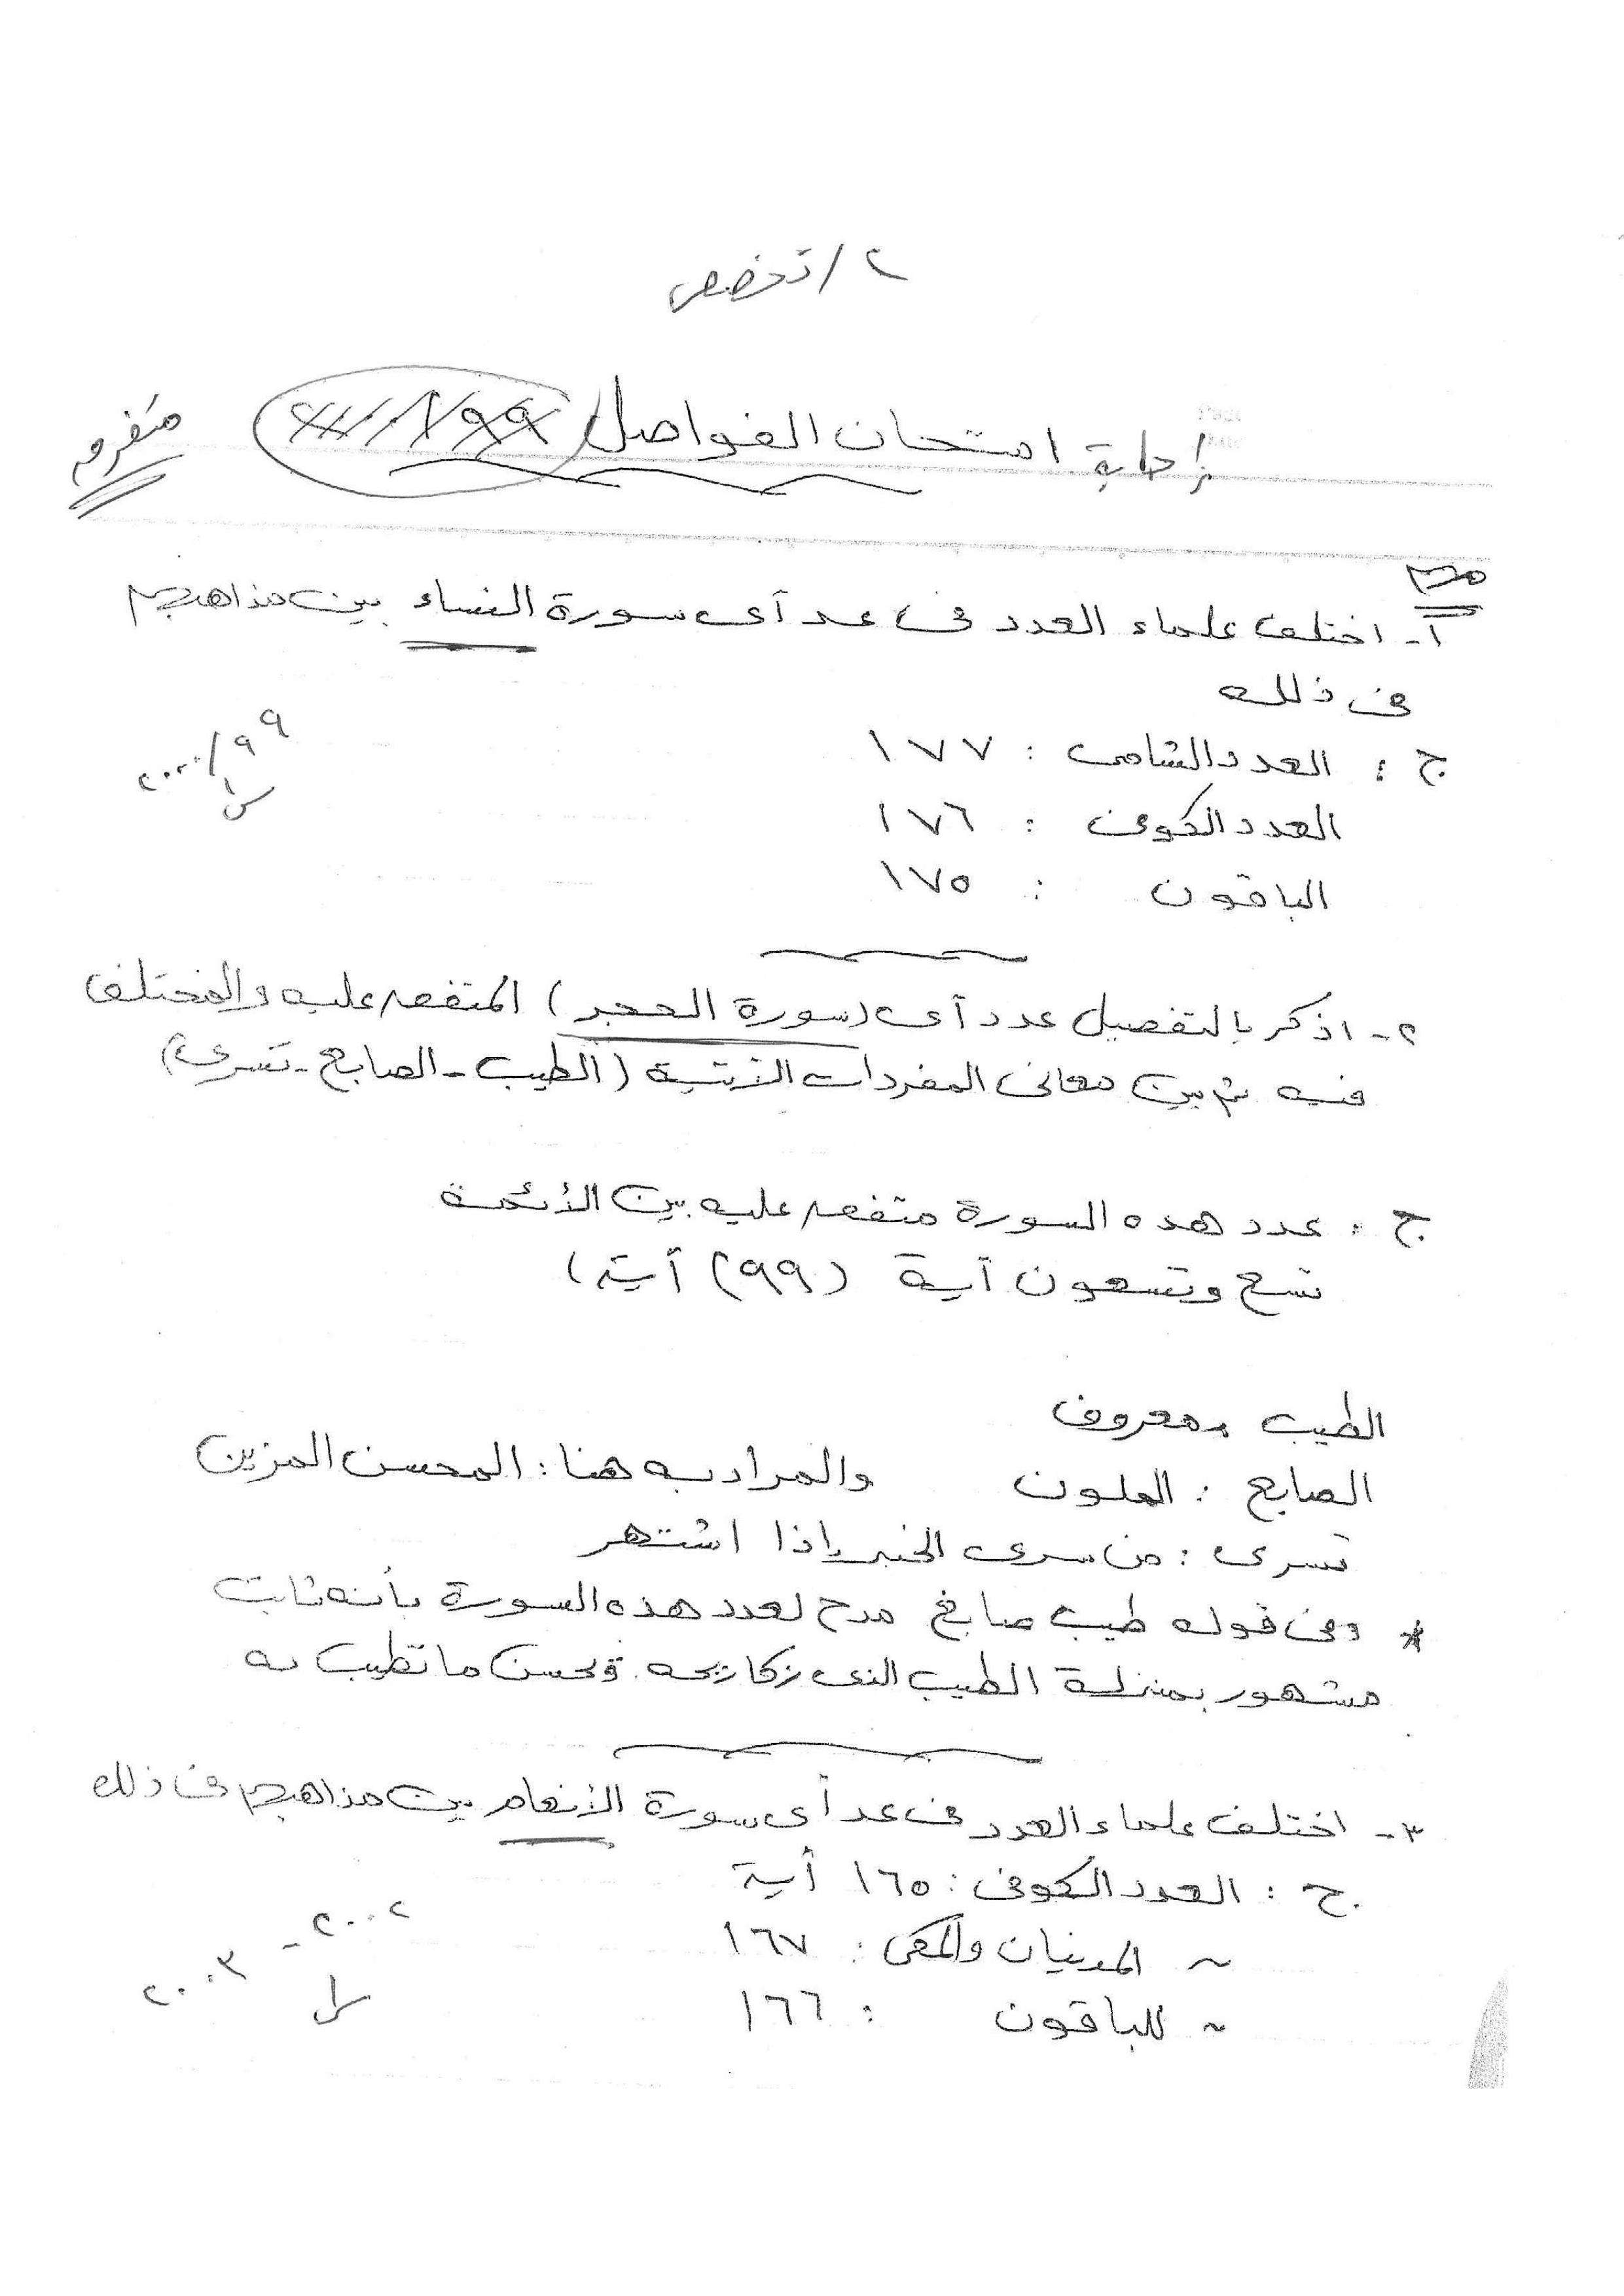 ٢/تخصص
إجابة امتحان الفواصل
أ- اختلف علماء العدد فى عد آى سورة النساء بين مذاهبهم
فى ذلك
٩٩/٢٠٠٠
ج : العدد الشامى : ١٧٧
العدد الكوفى : ١٧٦
الباقون : ١٧٥
٢- اذكر بالتفصيل عدد آى (سورة الحجر) المتفق عليه والمختلف
فيه ثم بين معانى المفردات الآتية (الطيب - الصابغ - تسرى)
ج : عدد هذه السورة متفق عليه بين الأئمة
تسع وتسعون آية (٩٩) آية)
الطيب : معروف
الصابغ : الملون والمراد به هنا : المحسن المزين
تسرى : من سرى الخبر إذا اشتهر
* وفى قوله طيب صابغ مدح لعدد هذه السورة بأنه ثابت
مشهور بمنزلة الطيب الذى زكا ريحه وحسن ما تطيب به
٣- اختلف علماء العدد فى عد آى سورة الأنعام بين مذاهبهم فى ذلك
ج : العدد الكوفى : ١٦٥ آية
~ المدنيان والمكى : ١٦٧
~ للباقون : ١٦٦
٢٠٠٢ -
٢٠٠٣